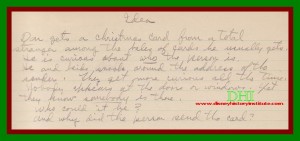 Idea
Don gets a christmas card from a total
stranger among the piles of cards he usually gets.
He is curious about who the person is.
He and kids snoop around the address of the
sender. They get more curious all the time.
Nobody appears at the doors or windows. Yet
they know somebody is there.
Who could it be?
And why did the person send the card?
DHI
www.disneyhistoryinstitute.com